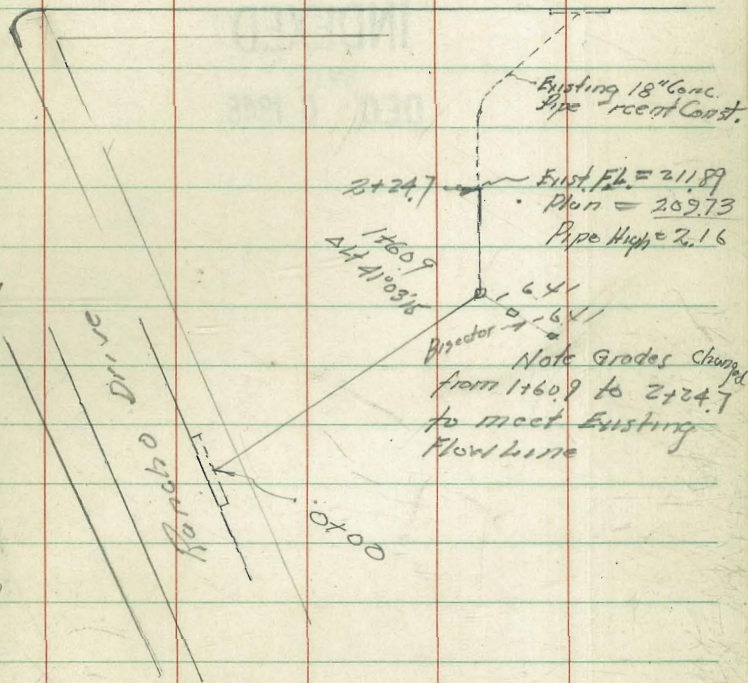 Existing 18" Conc.
Pipe rcent Const.
2+24.7
Exist. F.L. = 211.89
Plan = 209.73
Pipe High = 2.16
1+60.9
Δ Lt 41°03'15
6.41
6.41
Bisector
Note Grades Changed
from 1+60.9 to 2+24.7
to meet Existing
Flow Line
Rancho Drive
0+00
INDEXED